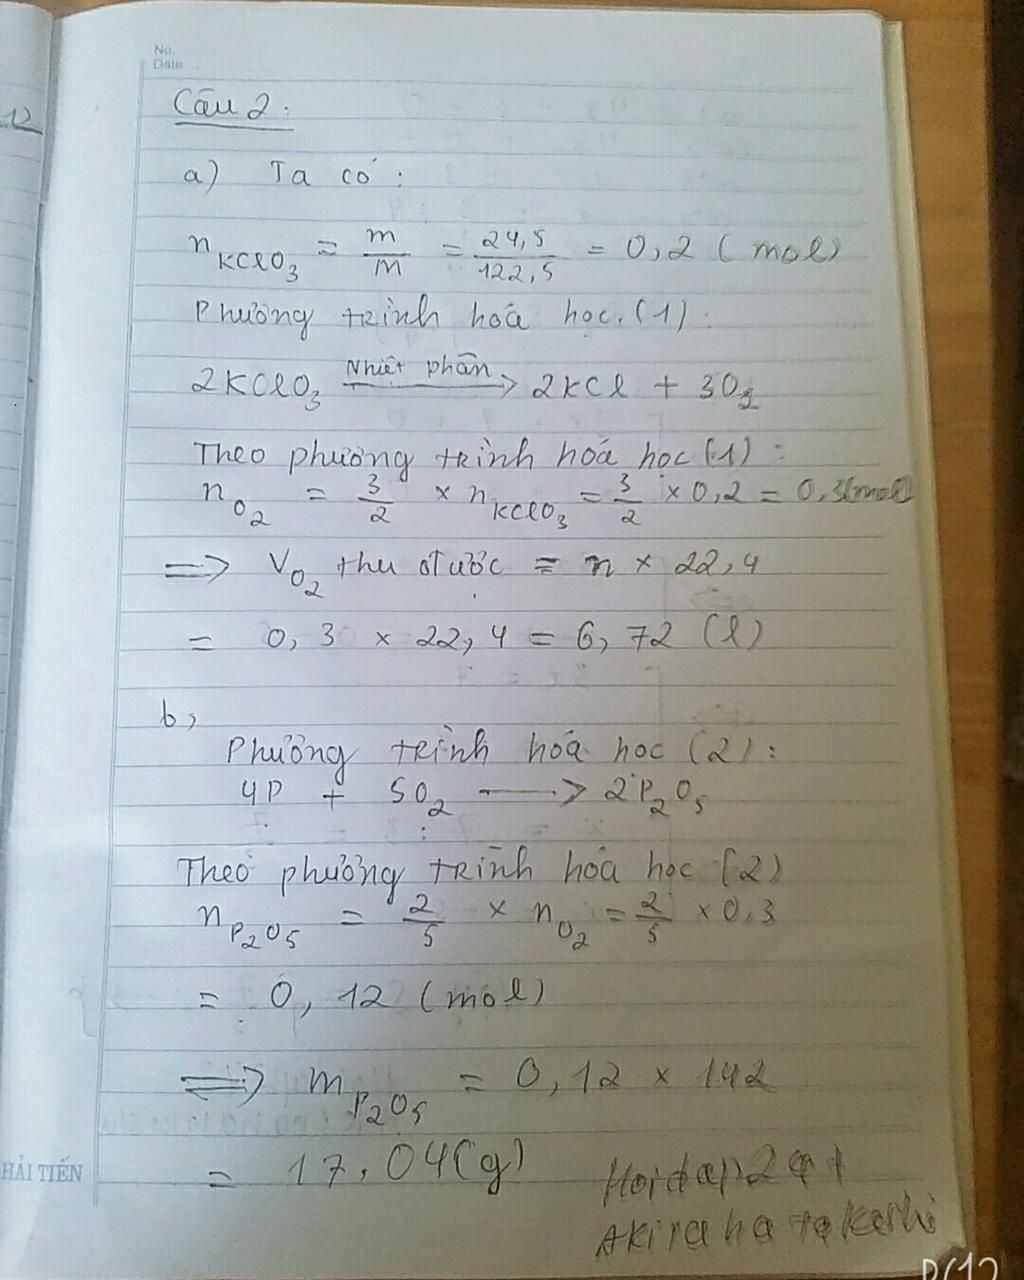 No.
Date
12
Câu 2:
a) Ta có:
n KClO3 = m/M = 24,5/122,5 = 0,2 (mol)
Phương trình hoá học (1):
2KClO3 Nhiệt phân → 2KCl + 3O2
Theo phương trình hoá học (1):
n O2 = 3/2 × n KClO3 = 3/2 × 0,2 = 0,3(mol)
=> V O2 thu được = n × 22,4
= 0,3 × 22,4 = 6,72 (l)
b,
Phương trình hoá học (2):
4P + 5O2 → 2P2O5
Theo phương trình hoá học (2)
n P2O5 = 2/5 × n O2 = 2/5 × 0,3
= 0,12 (mol)
=> m P2O5 = 0,12 × 142
= 17,04(g)
HẢI TIẾN
Hoidap24
Akirahatakashi